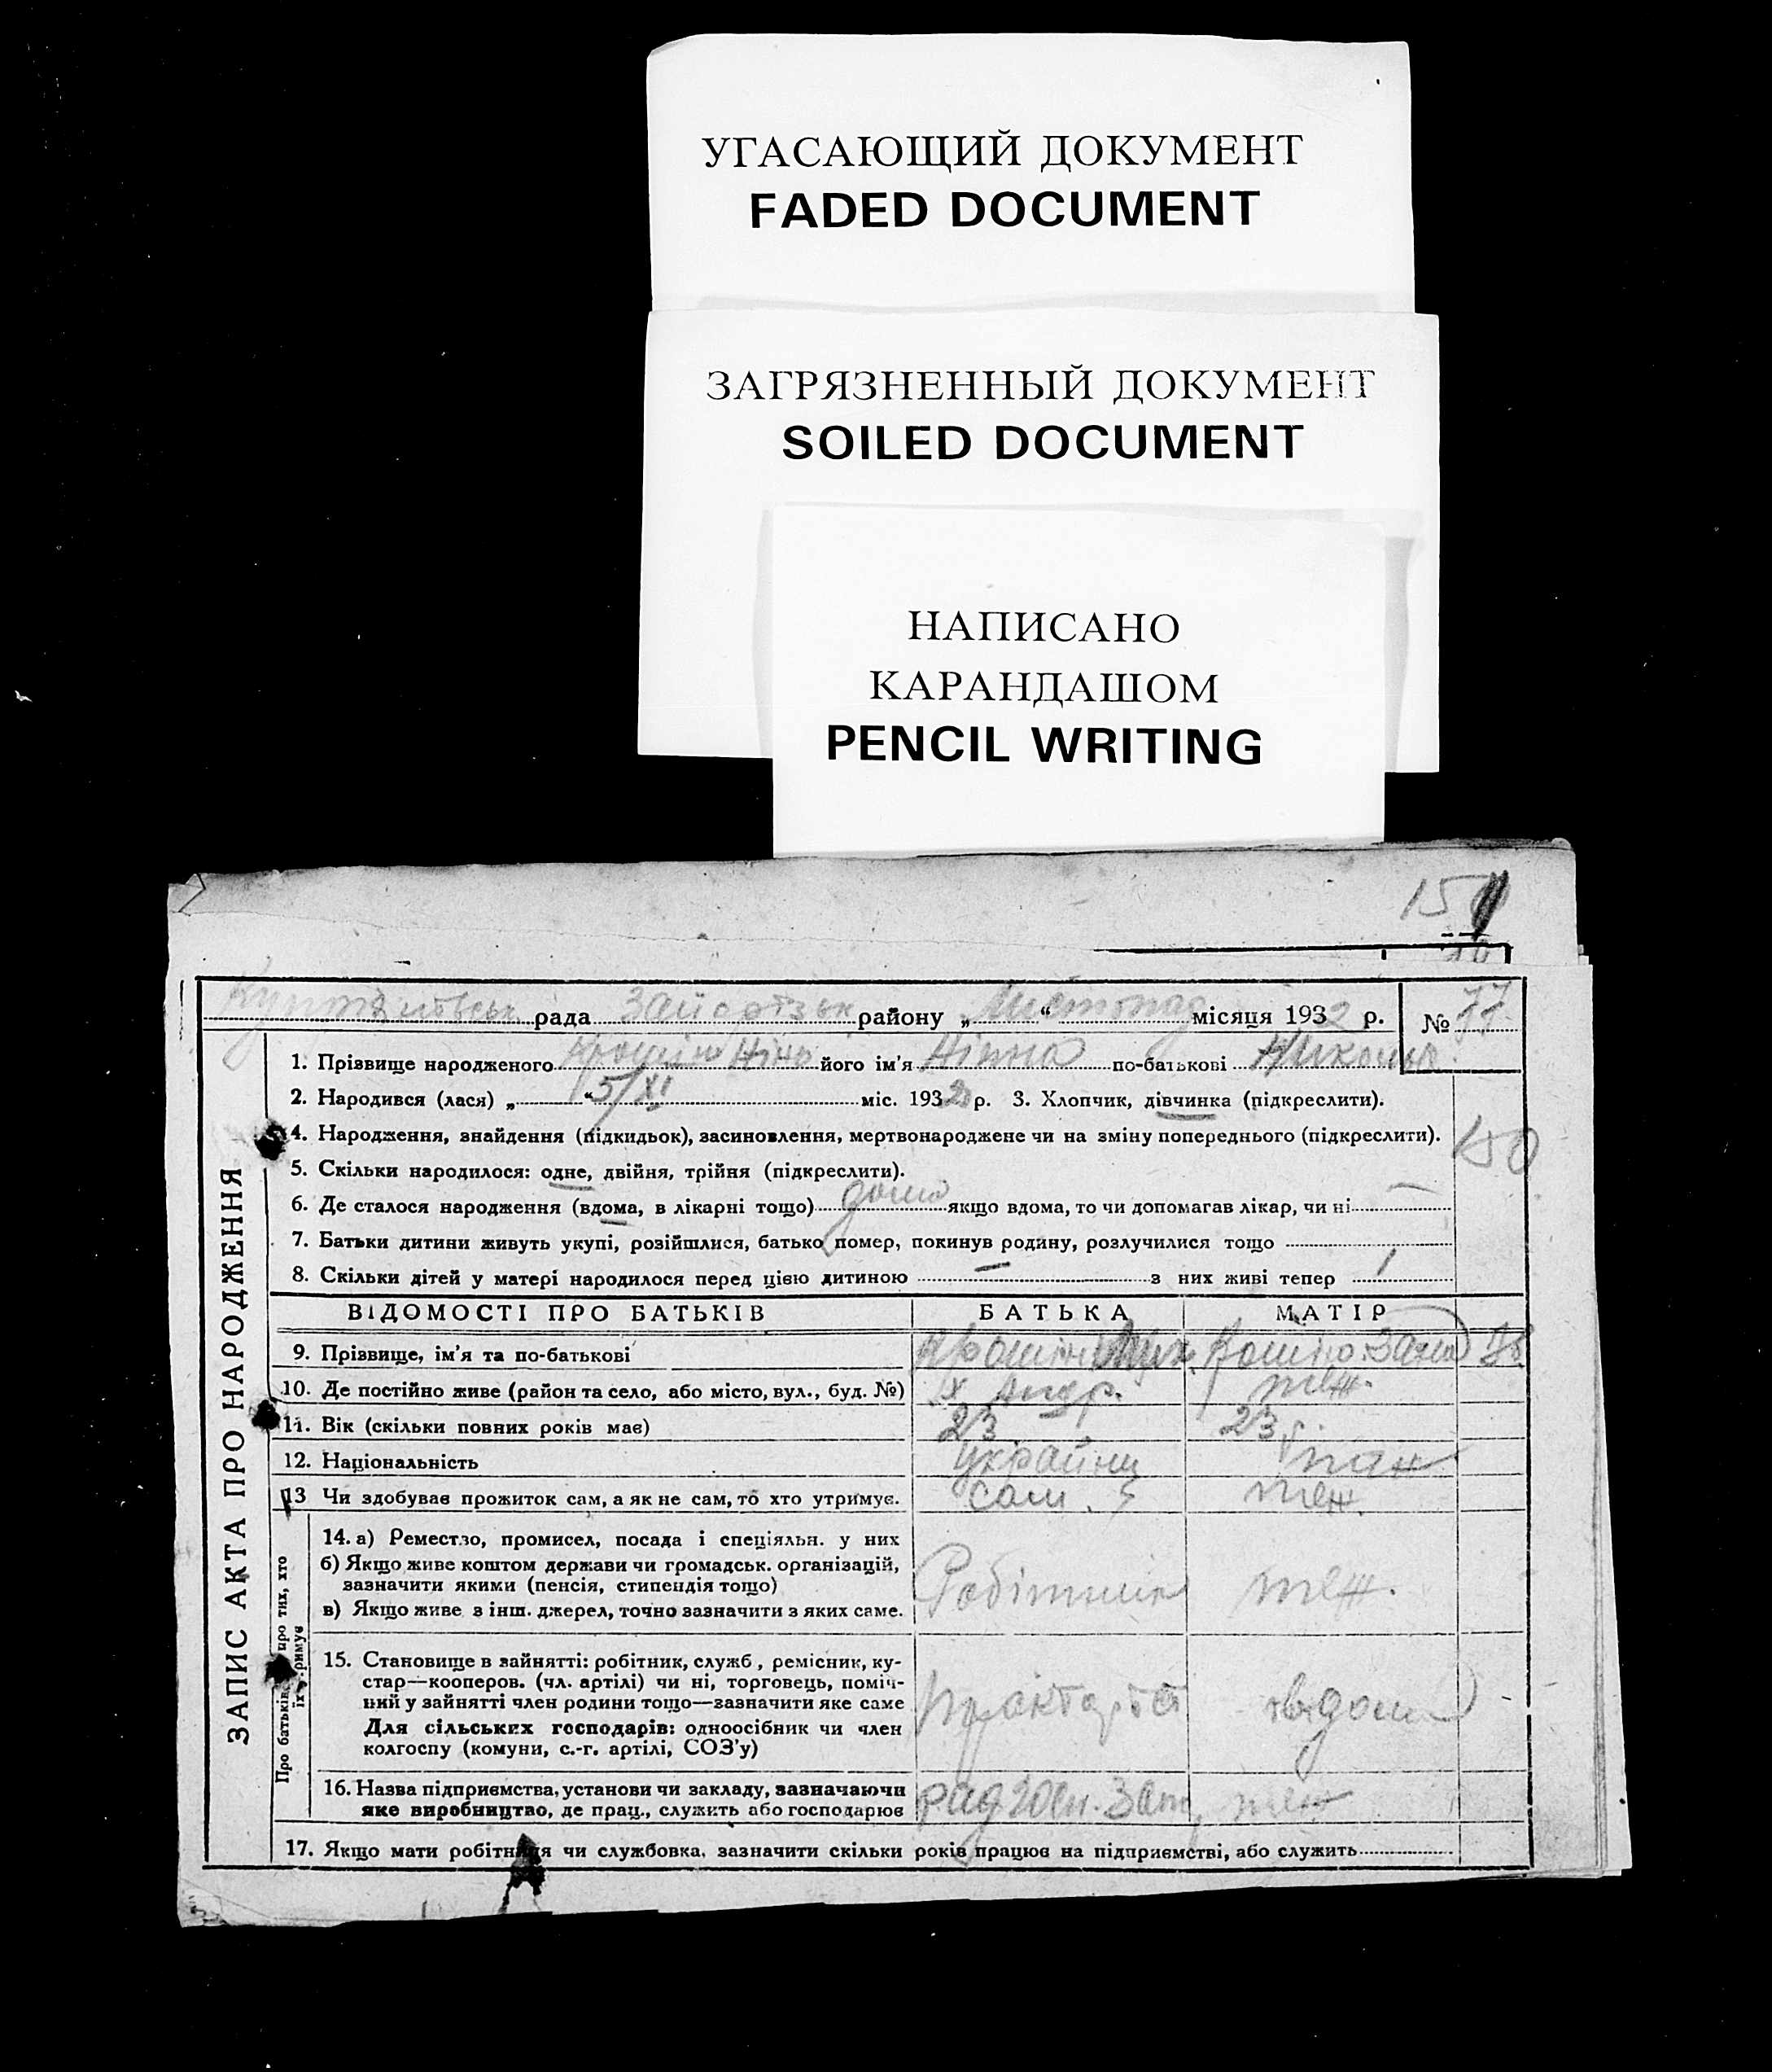 УГАСАЮЩИЙ ДОКУМЕНТ
FADED DOCUMENT
ЗАГРЯЗНЕННЫЙ ДОКУМЕНТ
SOILED DOCUMENT
НАПИСАНО
КАРАНДАШОМ
PENCIL WRITING
рада району „ Листопад “ місяця 1932 р. № 77
ЗАПИС АКТА ПРО НАРОДЖЕННЯ
1. Прізвище народженого його ім'я по-батькові
2. Народився (лася) „ “ 5/XI міс. 1932 р. 3. Хлопчик, дівчинка (підкреслити).
4. Народження, знайдення (підкидьок), засиновлення, мертвонароджене чи на зміну попереднього (підкреслити).
150
5. Скільки народилося: одне, двійня, трійня (підкреслити).
6. Де сталося народження (вдома, в лікарні тощо) дома якщо вдома, то чи допомагав лікар, чи ні —
7. Батьки дитини живуть укупі, розійшлися, батько помер, покинув родину, розлучилися тощо
8. Скільки дітей у матері народилося перед цією дитиною — з них живі тепер 1
ВІДОМОСТІ ПРО БАТЬКІВ БАТЬКА МАТІР
9. Прізвище, ім'я та по-батькові
10. Де постійно живе (район та село, або місто, вул., буд. №) теж.
11. Вік (скільки повних років має) 23 23
12. Національність
13 Чи здобував прожиток сам, а як не сам, то хто утримує. сам. теж.
Про батьків, про тих, хто їх утримує
14. а) Ремество, промисел, посада і спеціяльн. у них
б) Якщо живе коштом держави чи громадськ. організацій,
зазначити якими (пенсія, стипендія тощо)
Робітник теж.
в) Якщо живе з інш. джерел, точно зазначити з яких саме.
15. Становище в зайнятті: робітник, служб., ремісник, ку-
стар—кооперов. (чл. артілі) чи ні, торговець, поміч-
ний у зайнятті член родини тощо—зазначити яке саме
Для сільських господарів: одноосібник чи член
колгоспу (комуни, с.-г. артілі, СОЗ'у)
16. Назва підприємства, установи чи закладу, зазначаючи
яке виробництво, де прац., служить або господарює
теж
17. Якщо мати робітниця чи службовка, зазначити скільки років працює на підприємстві, або служить